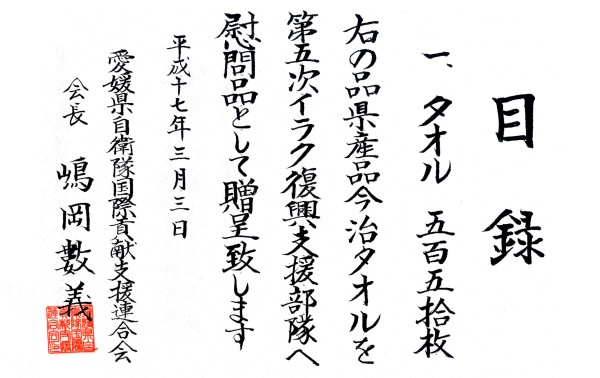 目録
一、タオル 五百五拾枚
右の品県産品今治タオルを
第五次イラク復興支援部隊へ
慰問品として贈呈致します
平成十七年三月三日
愛媛県自衛隊国際貢献支援連合会
会長 嶋岡數義